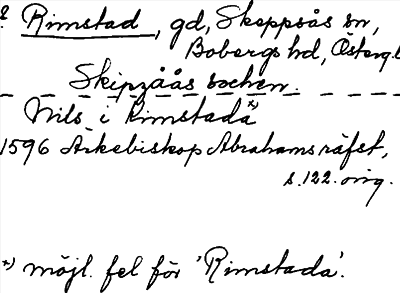 ? Rimstad, gd, Skeppsås sn,
Bobergs hd, Östergl
Skipzåås sochen.
Nils i Rimstada *)
1596 Ärkebiskop Abrahams räfst,
s. 122. orig.
*) möjl. fel för 'Rimstada'.